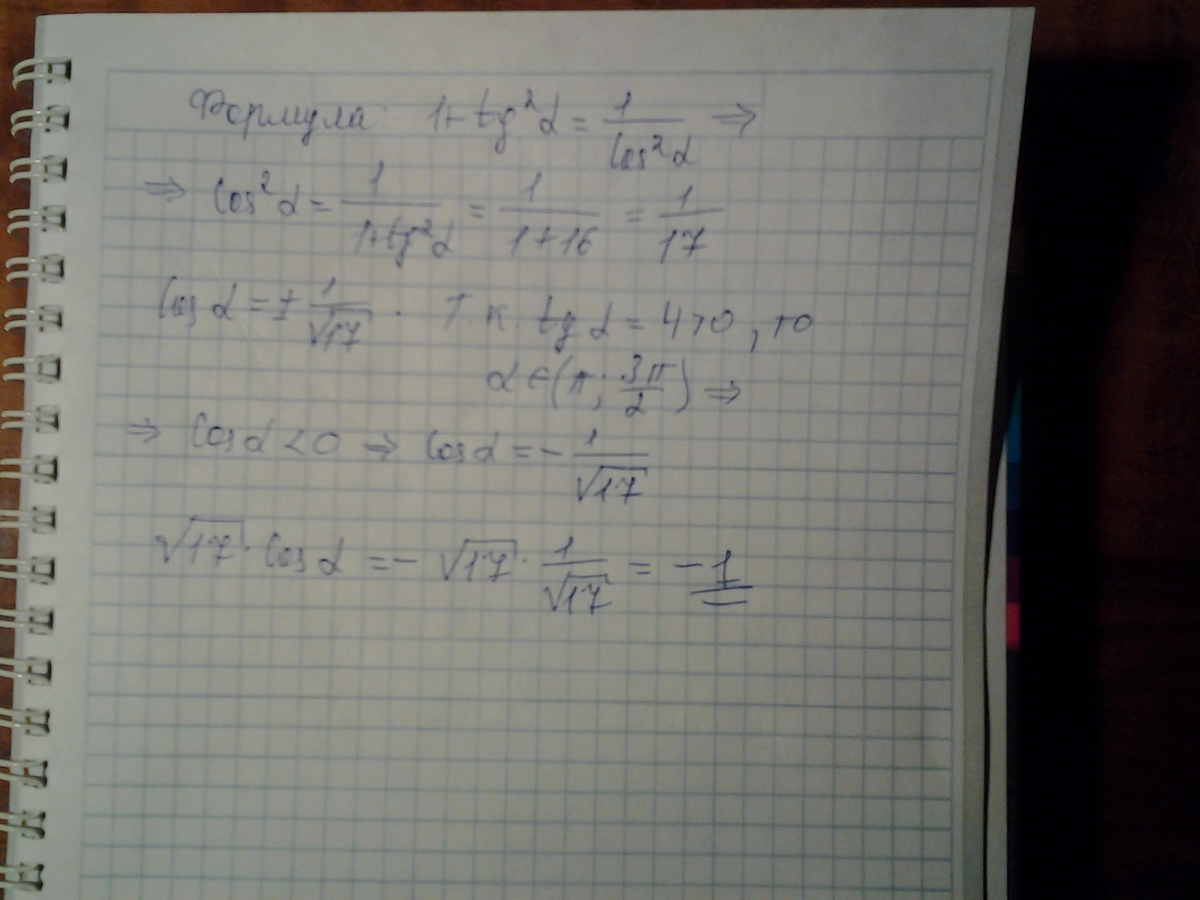 Формула: 1+tg²α = 1/cos²α ⇒
⇒ cos²α = 1/(1+tg²α) = 1/(1+16) = 1/17
cos α = ± 1/√17 . Т.к. tg α = 4>0, то
α ∈ (π; 3π/2) ⇒
⇒ cos α < 0 ⇒ cos α = - 1/√17
√17 · cos α = - √17 · 1/√17 = -1